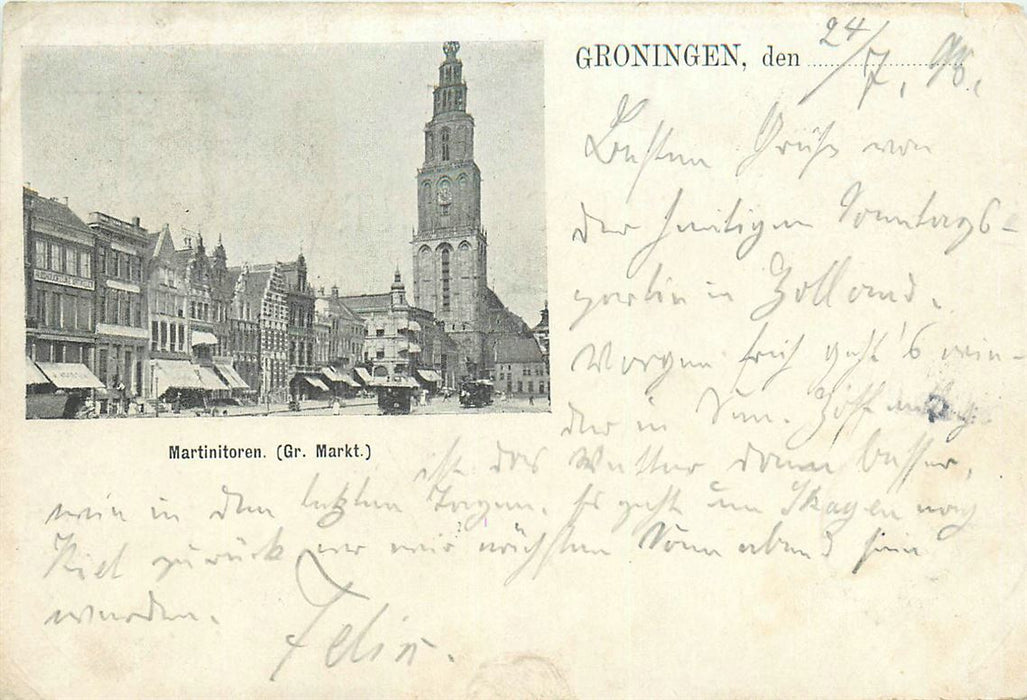 GRONINGEN, den 24/7. 98.
Besten Grüße von
der heutigen Sonntags-
partie in Holland.
Morgen früh geht's wie-
der in See. Hoffentlich
ist das Wetter dann besser,
wie in den letzten Tagen. Es geht um Skagen nach
Kiel zurück wo wir nächsten Sonnabend sein
werden.
Felix.
Martinitoren. (Gr. Markt.)